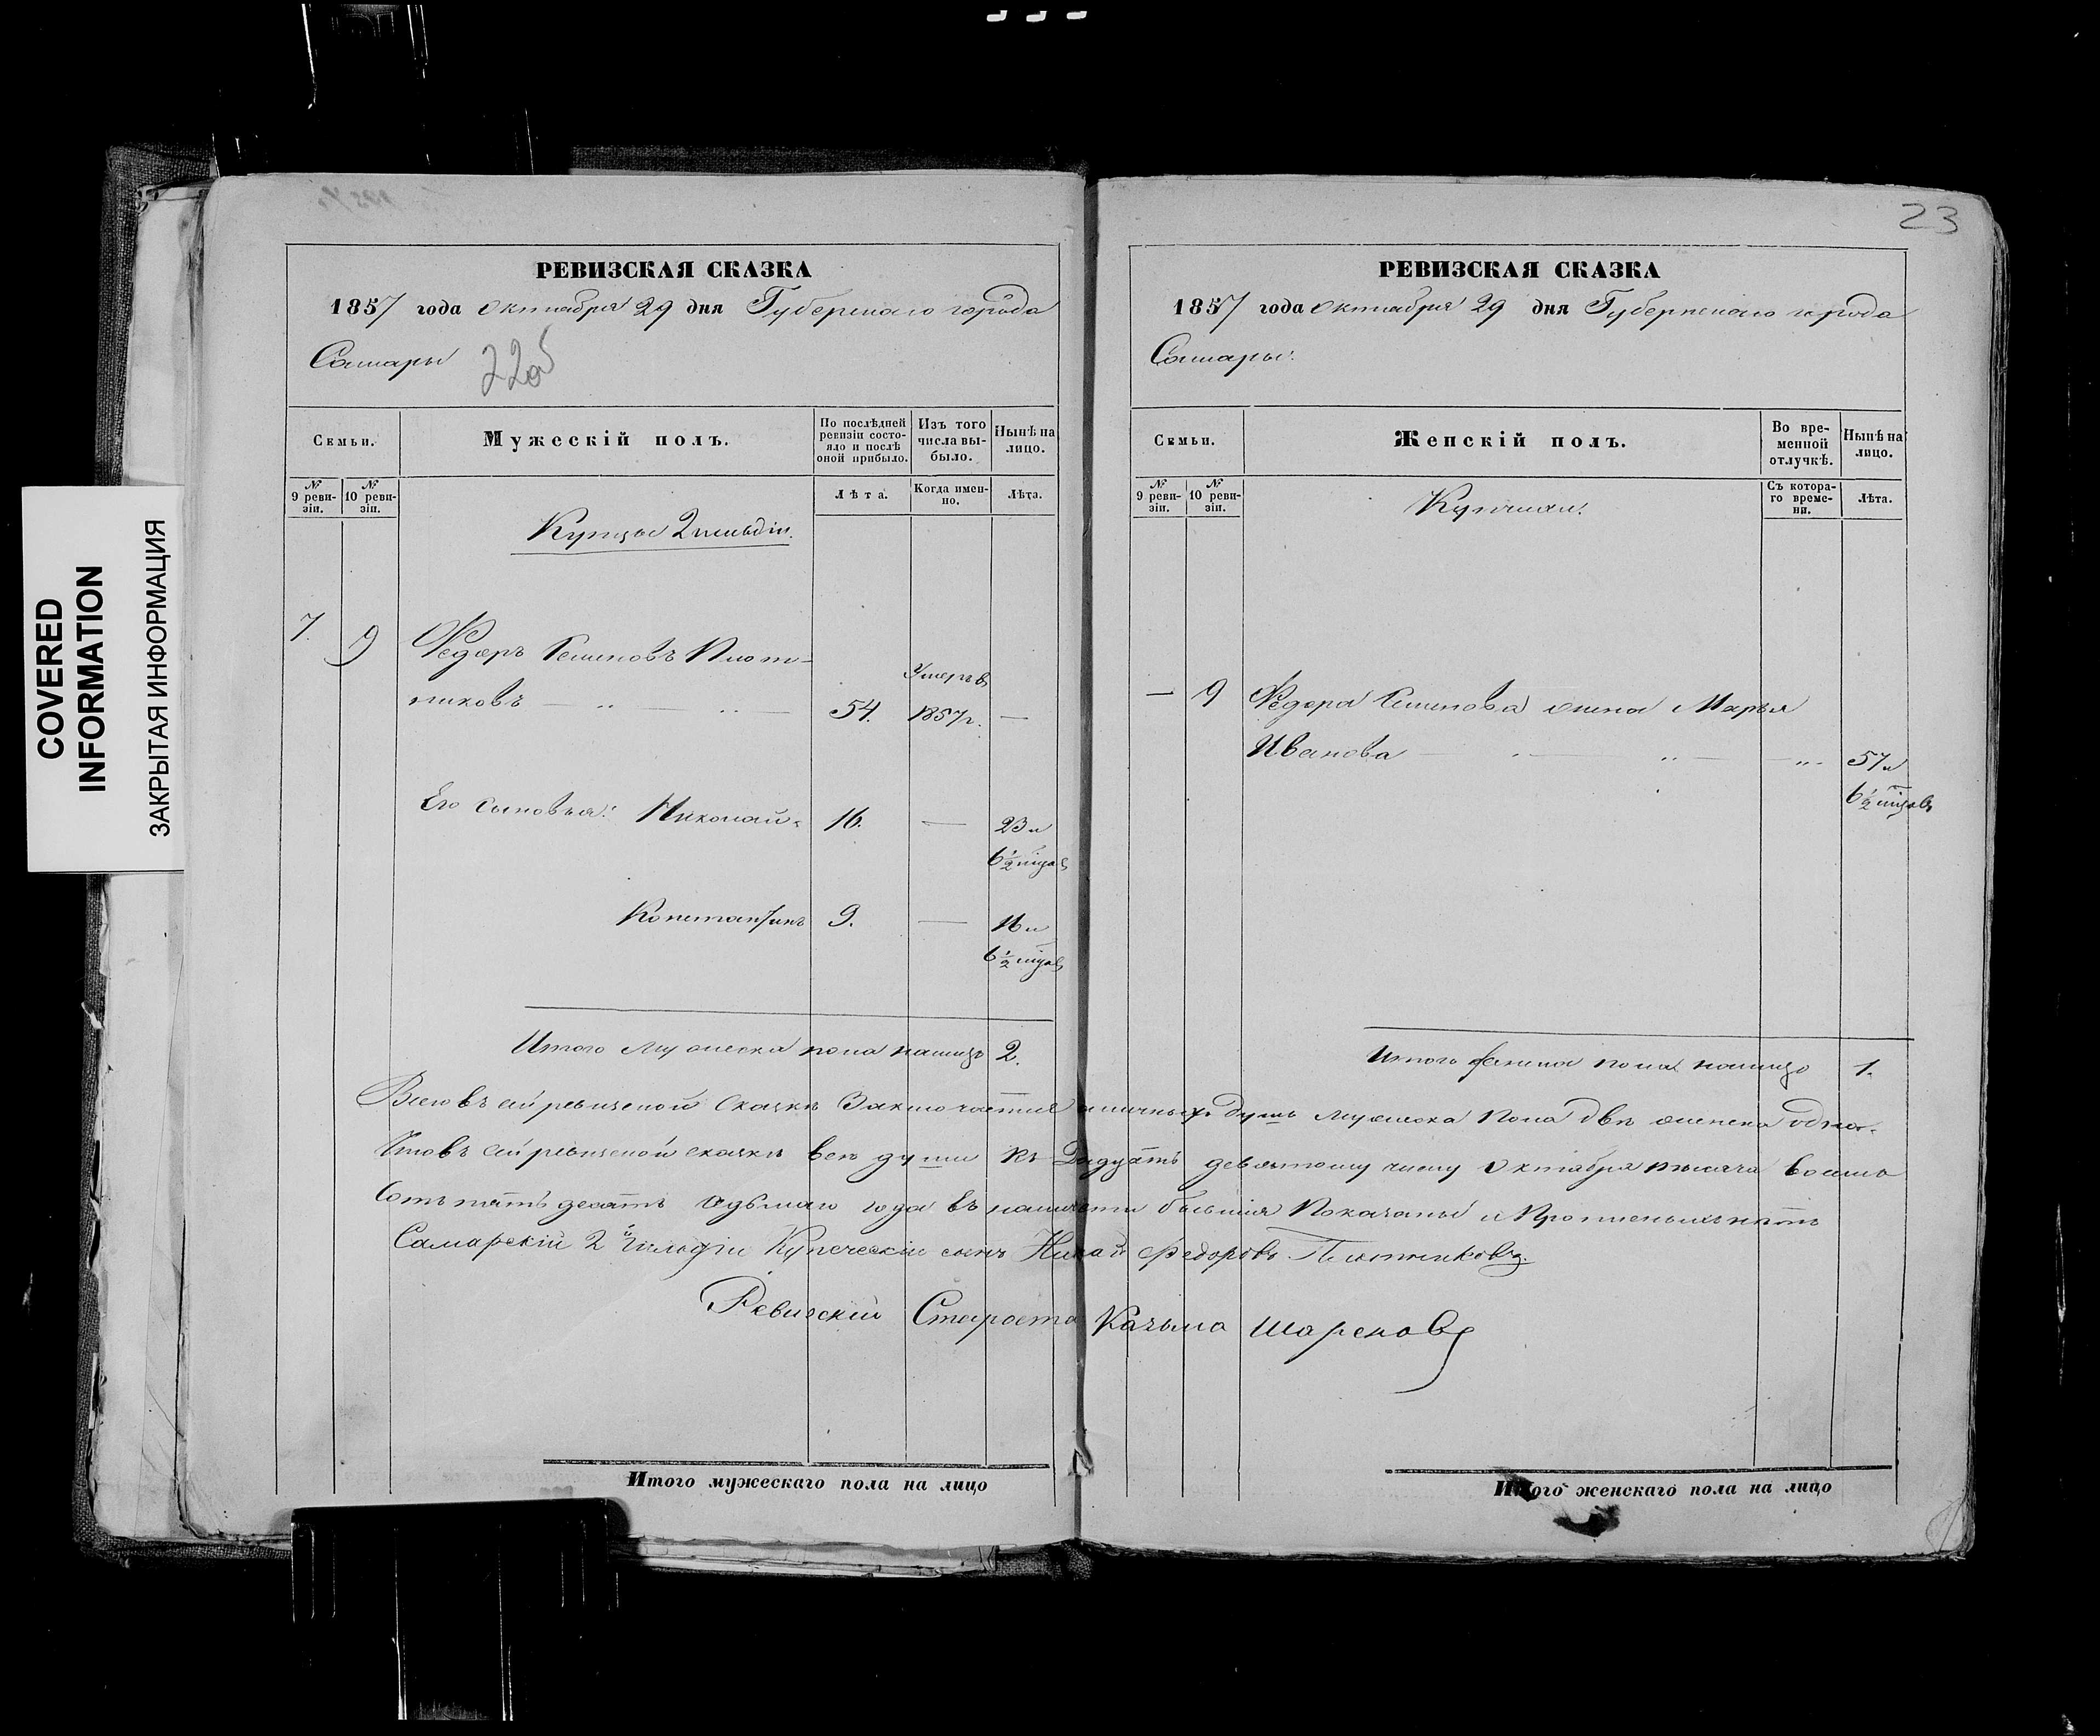 23
РЕВИЗСКАЯ СКАЗКА
1857 года Октября 29 дня Губернскаго города
Самары
22об
Семьи.
Мужескій полъ.
По послѣдней ревизіи состояло и послѣ оной прибыло.
Изъ того числа выбыло.
Нынѣ на лицо.
№ 9 ревизіи.
№ 10 ревизіи.
Лѣта.
Когда именно.
Лѣта.
Купцы 2 гильдіи.
7. 9 Федоръ Семеновъ Плот-
никовъ 54. Умеръ въ 1857 г. —
Его сыновья: Николай 16. — 23 и
6 1/2 мѣцовъ
Константинъ 9. — 16 и
6 1/2 мѣцовъ
Итого мужеска пола налицо 2.
РЕВИЗСКАЯ СКАЗКА
1857 года Октября 29 дня Губернскаго города
Самары.
Семьи.
Женскій полъ.
Во временной отлучкѣ.
Нынѣ на лицо.
№ 9 ревизіи.
№ 10 ревизіи.
Съ котораго времени.
Лѣта.
Купчихи.
— 9 Федора Семенова жена Марья
Иванова 57 и
6 1/2 мѣцовъ
Итого женска пола налицо 1.
Всего въ сей ревизской сказкѣ Заключается наличныхъ душъ мужеска пола двѣ женска одна.
Что въ сей ревизской сказкѣ всѣ души къ Двадцать девятому числу Октября тысяча восемь
Сотъ пятьдесятъ седьмаго года въ наличности бывшія Показаны и Пропущенныхъ нѣтъ
Самарскій 2й гильдіи Купеческій сынъ Никалай Федоровъ Плотниковъ.
Ревизскій Староста Казьма Шарековъ
Итого мужескаго пола на лицо
Итого женскаго пола на лицо
COVERED
INFORMATION
ЗАКРЫТАЯ ИНФОРМАЦИЯ